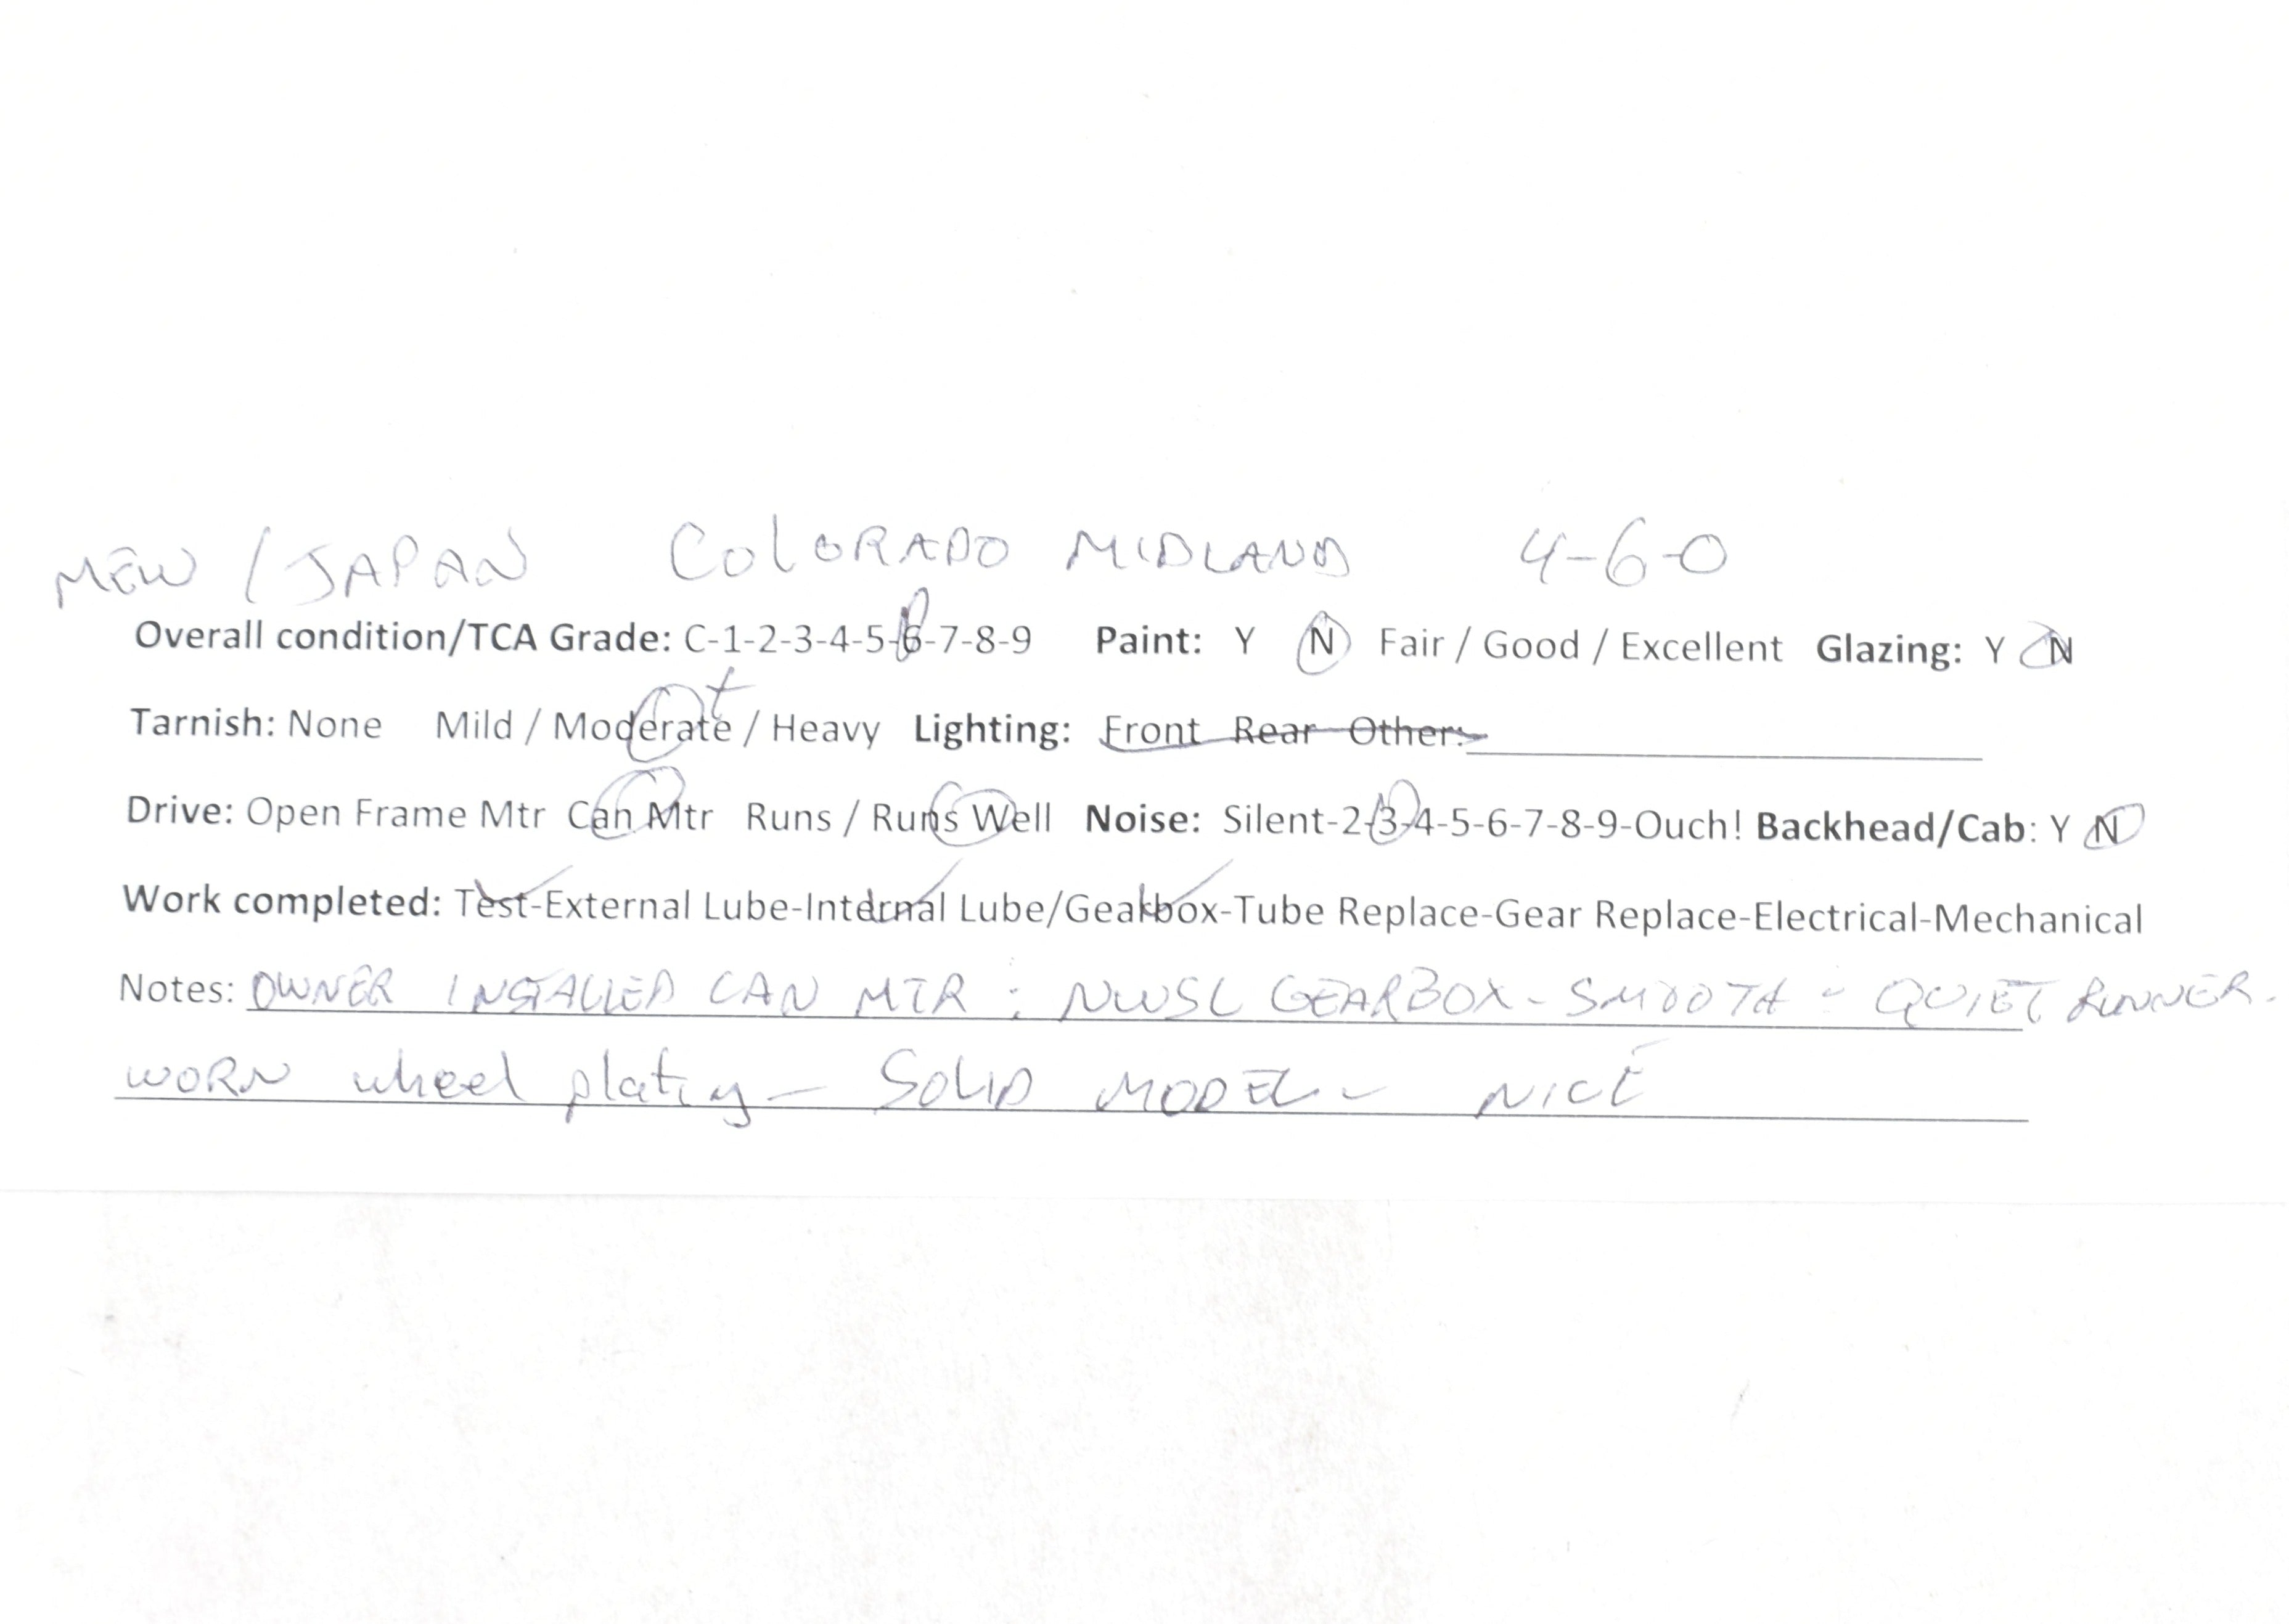 MEW / JAPAN COLORADO MIDLAND 4-6-0
Overall condition/TCA Grade: C-1-2-3-4-5-6-7-8-9 Paint: Y N Fair / Good / Excellent Glazing: Y N
Tarnish: None Mild / Moderate + / Heavy Lighting: Front Rear Other:
Drive: Open Frame Mtr Can Mtr Runs / Runs Well Noise: Silent-2-3-4-5-6-7-8-9-Ouch! Backhead/Cab: Y N
Work completed: Test-External Lube-Internal Lube/Gearbox-Tube Replace-Gear Replace-Electrical-Mechanical
Notes: OWNER INSTALLED CAN MTR : NWSL GEARBOX - SMOOTH - QUIET RUNNER.
WORN wheel plating - SOLID MODEL - NICE